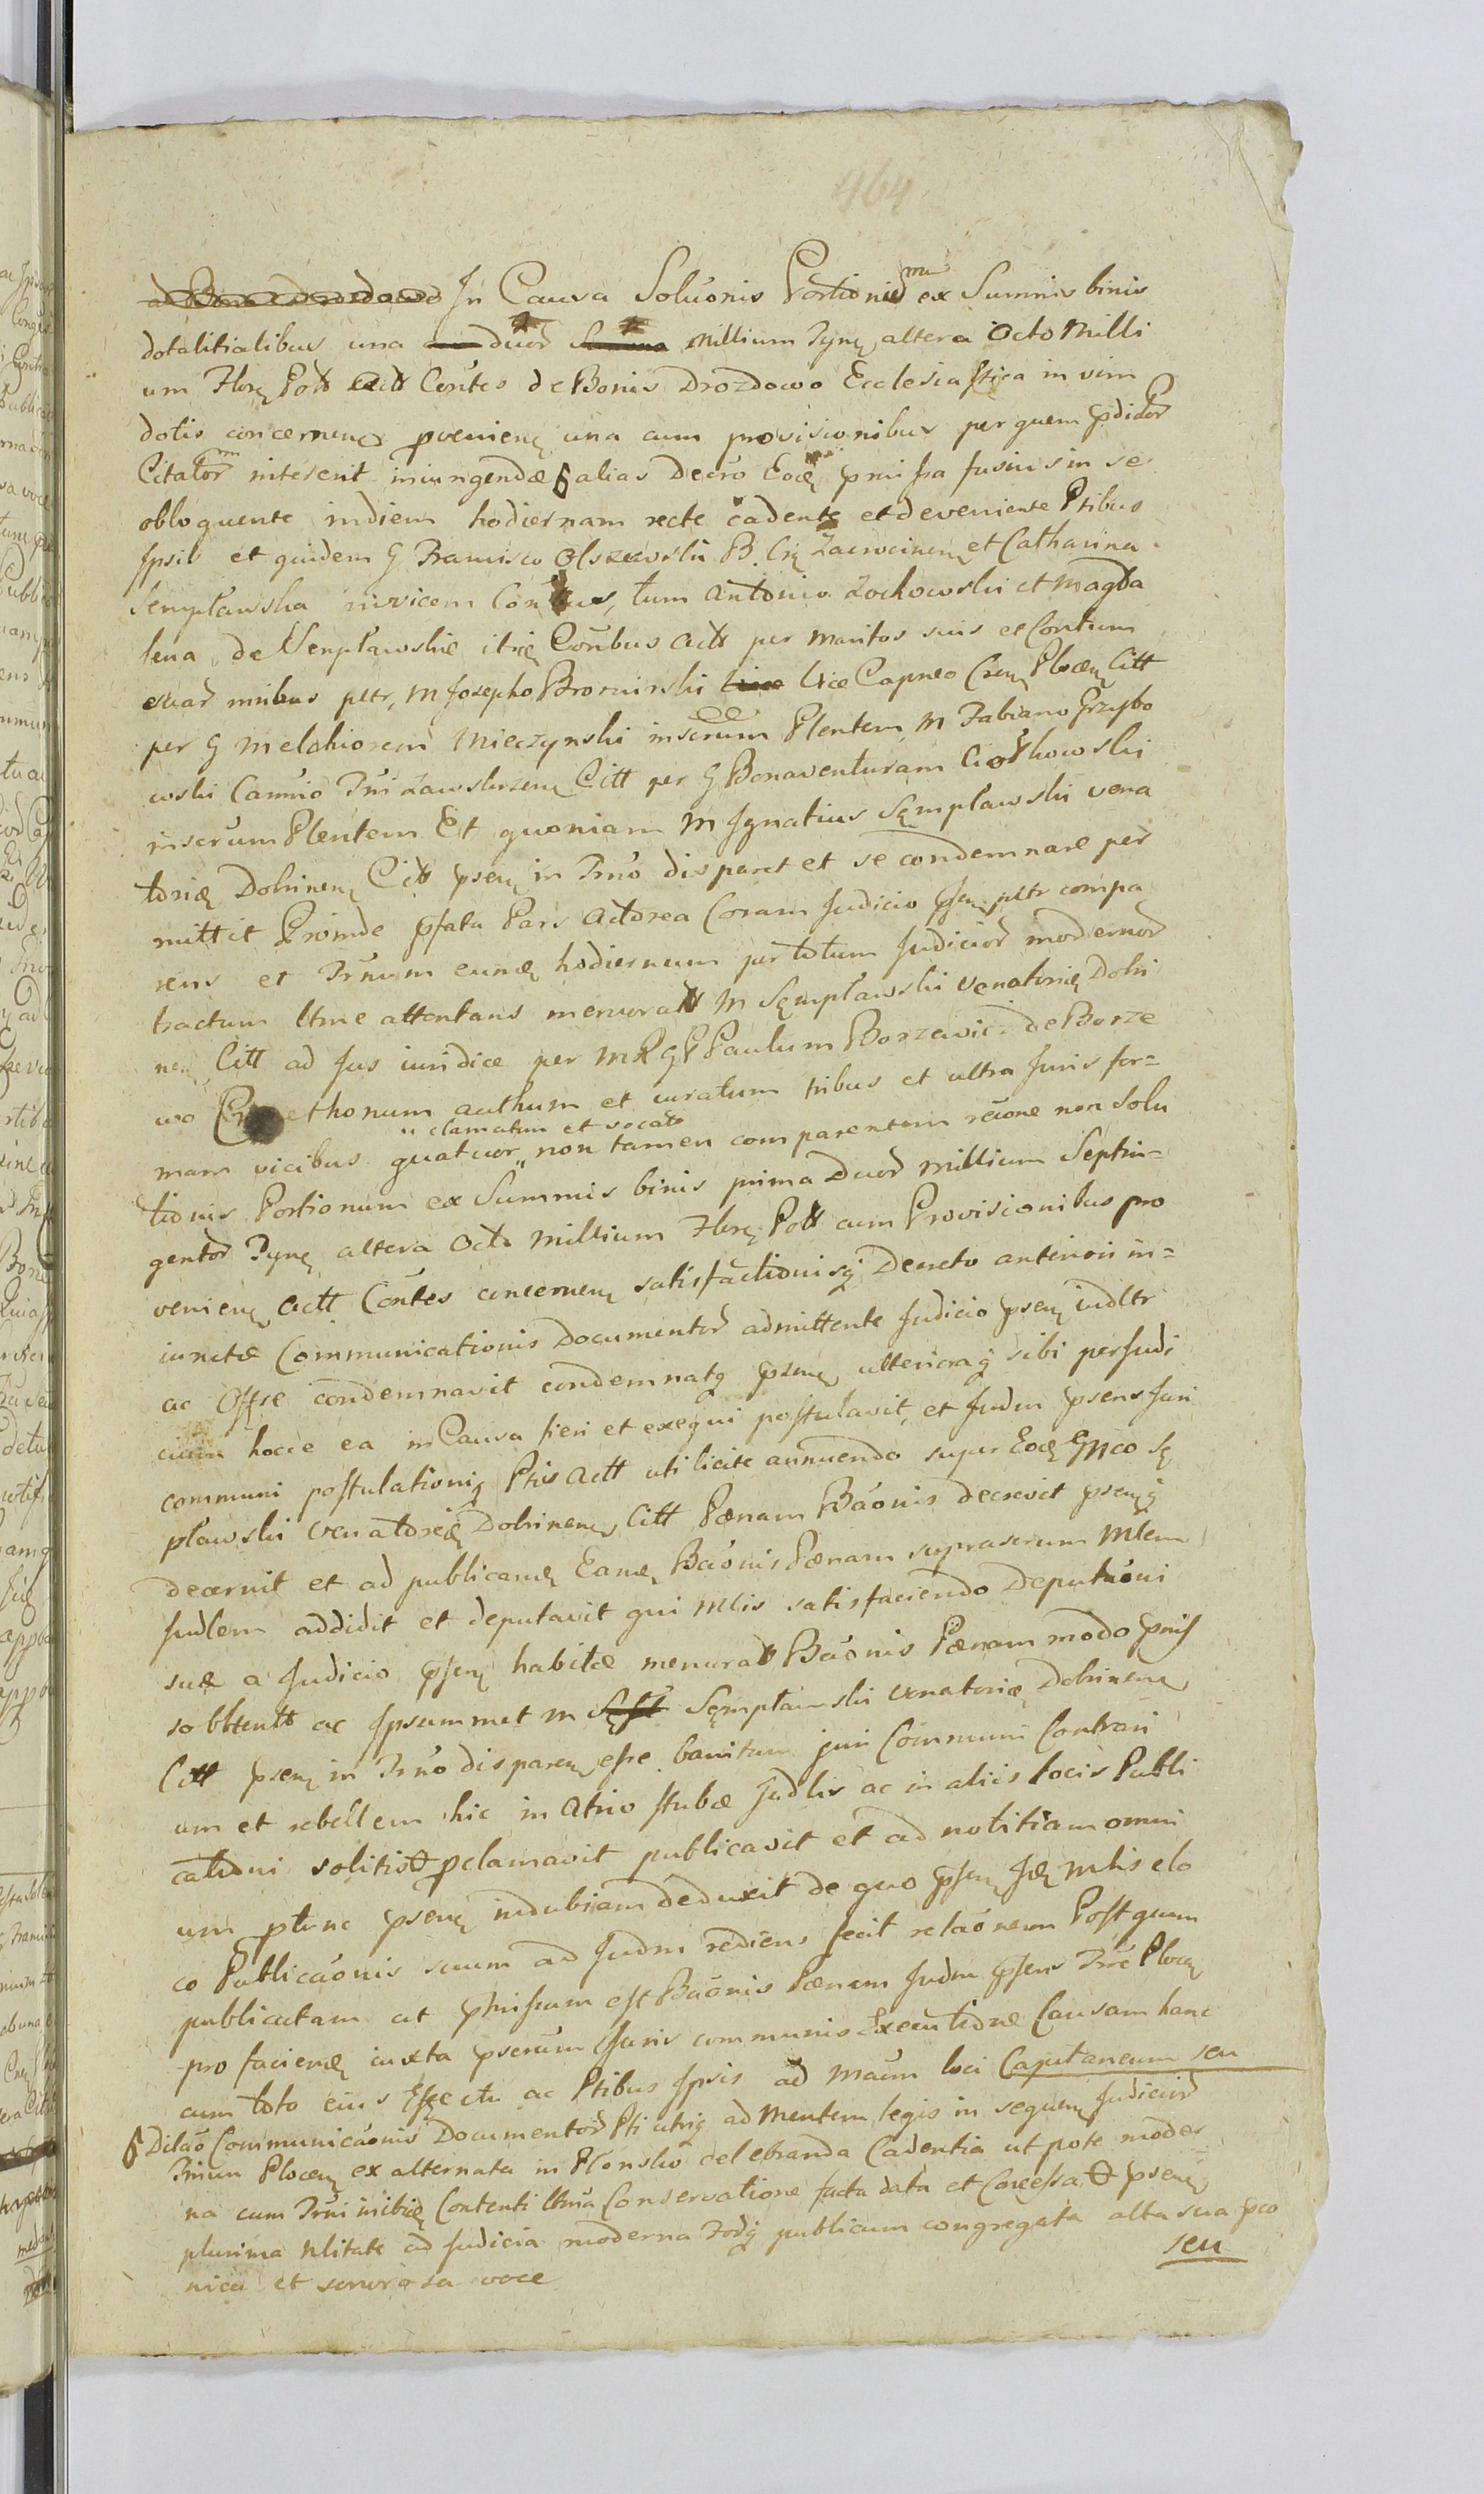 464
In Causa Soluõnis Portionum ex Summis binis
dotalitialibus una duor millium Tynę altera Octo milli
um Florę Poll Actt Contes de Bonis Drozdowo Ecclesiastica in vim
dotis concernenę pvenienę una cum provisionibus per quem pdictor
Citator interent iniungendæ § alias Decro Eoćę pmissa fusius in se
obloquente indiem hodiernam recte cadente et deveniente Ptibus
Ipsis et quidem G Francisco Olszewski B. Crę Zacrocimenę et Catharina
Sempławska invicem Contibus, tum Antonio Zochowski et Magda
lena de Sempławskie itię Conbus Actt per maritos suis et Contum
evad mibus pltr, M Josepho Bromirski Vice Capneo Crenę Plocenę Citt
per G Melchiorem Mieczynski inserum Plentem, M Fabiano Grzybo
wski Camrio Trri Zawskrzenę Citt per G Bonaventuram Ciołkowski
inserum Plentem Et quoniam M Ignatius Sęmpławski vena
toriæ Dobrinenę Citt psenę in Trno disparet et se condemnare per
mittit Proinde pfata Pars Actorea Coram Judicio psenę pltr compa
rens et Trnum eundę hodiernum per totum Judicior modernor
tractum ltme attentans memoratt M Sęmpławski Venatoriæ Dobri
nenę Citt ad Jus iuridice per M R G P Paulum Borzewic de Borze
wo Crethonum authum et iuratum tribus et ultra Juris for=
mam vicibus quatuor " non tamen comparentem rćione non Solu
" clamatum et vocato
tionis Portionum ex Summis binis prima Duor millium Septin=
gentor Tynę altera Octo millium Florę Poll cum Provisionibus pro
venienę Actt Contes concernenę satisfactionisq Decreto anteriori in=
iunctæ Communicationis Documentor admittente Judicio psenę indltr
ac Offse condemnavit condemnatq psenę ulterioraq sibi per Judi
cium hocce ea in Causa fieri et exequi postulavit, et Judm psens Juri
communi postulationiq Ptis Actt uti licite annuendo super Eoćę Gnco Sę
pławski Venatoriæ Dobrinenę Citt Pænam Bãonis decrevit psenęq
decernit et ad publicandę Eandę Bãonis Pænam suprascrum Mlem
Judlem addidit et deputavit qui Mlis satisfaciendo Deputãoni
suæ a Judicio psenę habitæ memoratt Bãonis Pænam modo pmis
so bltentt ac Ipsummet M Sęmpławski Venatoriæ Dobrinenę
Citt psenę in Trno disparenę esse banitum juri Communi Contrari
um et rebellem hic in Atrio stubæ Judlis ac in aliis locis Publi
cationi solitis pclamavit publicavit et ad notitiam omni
um ptunc psenę indubiam deduxit de quo psenę Idę Mlis elo
co Publicãonis suum ad Judm rediens fecit relãonem Postquam
publicatam ut pmissum est Bãonis Pænam Judm psens Trre Plocenę
pro faciendę iuxta pscrum Juris communis Executione Causam hanc
cum toto eius Effectu ac Ptibus Ipsis ad Maum loci Capitaneum seu
§ Dilaõ Communicãonis Documentor Pti utriq ad mentem legis in sequenę Judicior
Trrium Plocenę ex alternata in Płonsko celebranda Cadentia utpote moder
na cum Trni inibię Contenti ltma Conservatione facta data et Concessa & psenę
plurima Nlitate ad Judicia moderna Fodę publicum congregata alta sua pco
nica et sonorosa voce
seu